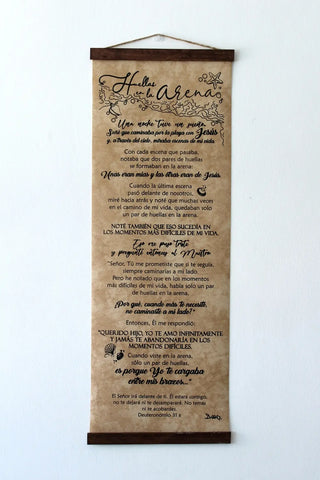 Huellas
en la Arena
Una noche tuve un sueño.
Soñé que caminaba por la playa con Jesús
y, a través del cielo, miraba escenas de mi vida.
Con cada escena que pasaba,
notaba que dos pares de huellas
se formaban en la arena:
Unas eran mías y las otras eran de Jesús.
Cuando la última escena
pasó delante de nosotros,
miré hacia atrás y noté que muchas veces
en el camino de mi vida, quedaban solo
un par de huellas en la arena.
NOTÉ TAMBIÉN QUE ESO SUCEDÍA EN
LOS MOMENTOS MÁS DIFÍCILES DE MI VIDA.
Eso me puso triste
y pregunté entonces al Maestro
"Señor, Tú me prometiste que si te seguía,
siempre caminarías a mi lado.
Pero he notado que en los momentos
más difíciles de mi vida, había solo un par
de huellas en la arena.
¿Por qué, cuando más te necesité,
no caminaste a mi lado?"
Entonces, Él me respondió:
"QUERIDO HIJO, YO TE AMO INFINITAMENTE
Y JAMÁS TE ABANDONARÍA EN LOS
MOMENTOS DIFÍCILES.
Cuando viste en la arena,
sólo un par de huellas,
es porque Yo te cargaba
entre mis brazos..."
El Señor irá delante de ti. Él estará contigo,
no te dejará ni te desamparará. No temas
ni te acobardes.
Deuteronomio 31:8